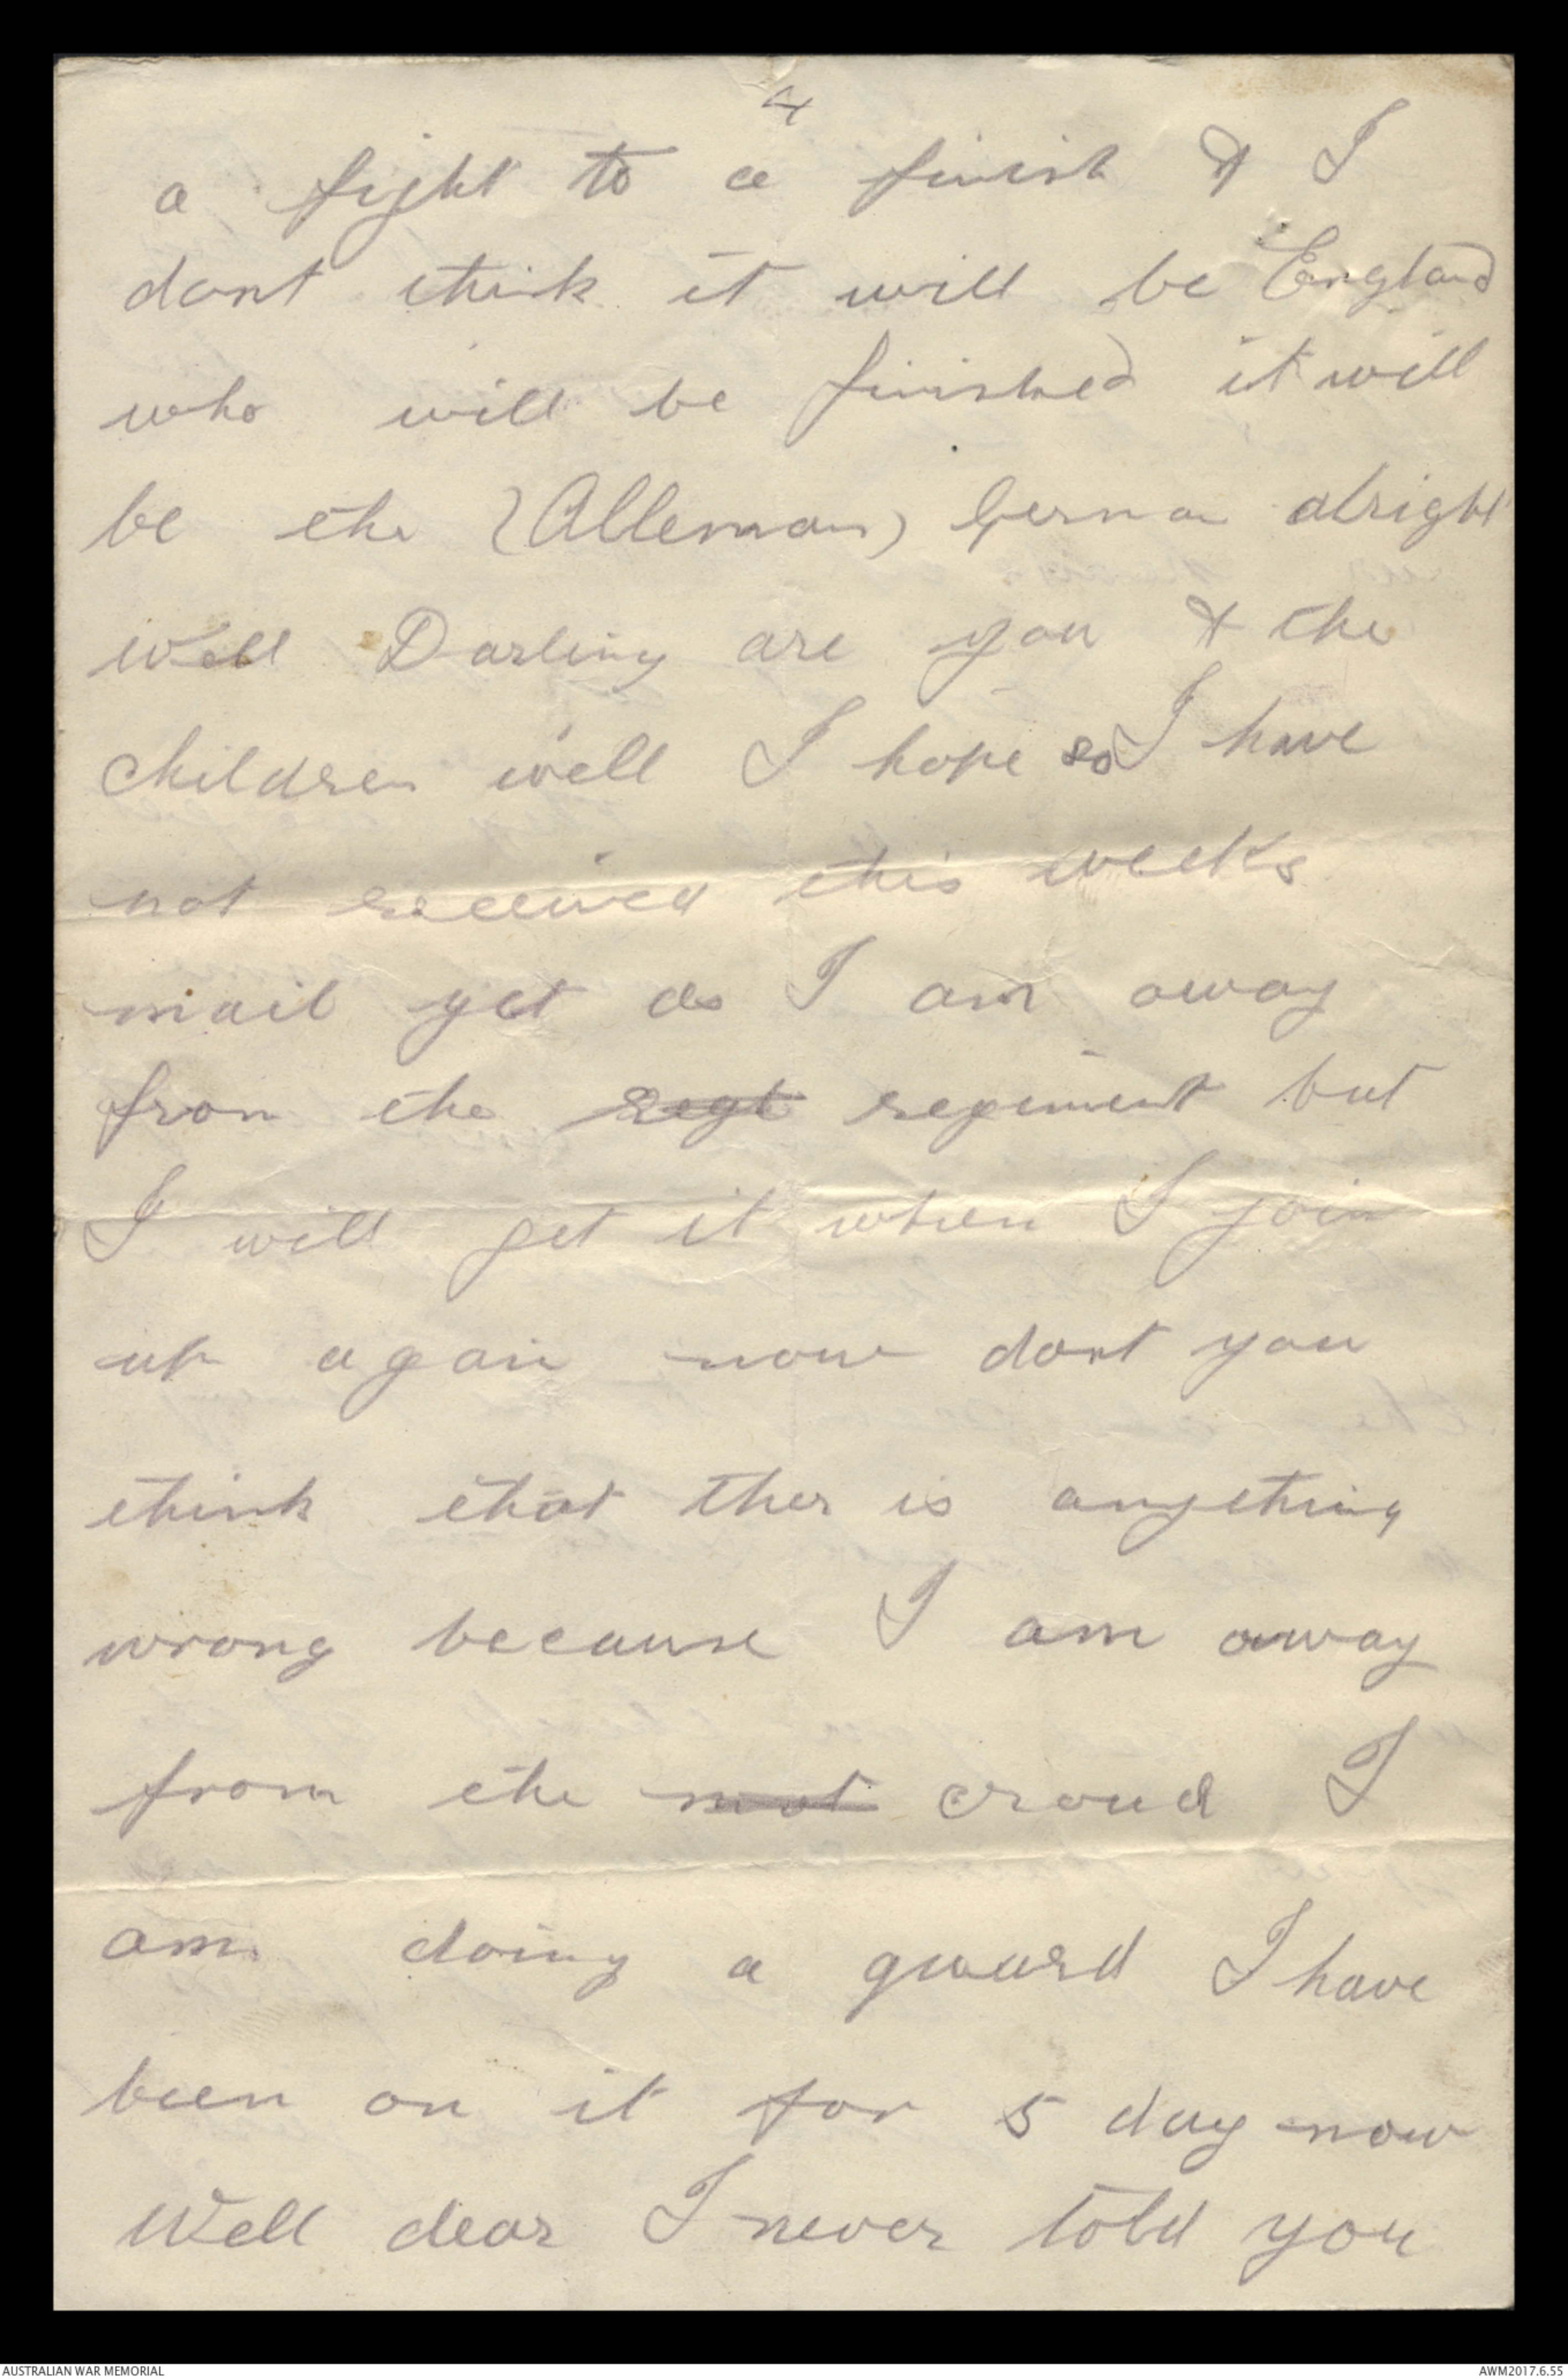 4
a fight to a finish & I
dont think it will be England
who will be finished it will
be the (Alleman) German alright
well Darling are you & the
children well I hope so I have
not received this weeks
mail yet as I am away
from the regt regiment but
I will get it when I join
up again now dont you
think that ther is anything
wrong because I am away
from the croud I
am doing a guard I have
been on it for 5 day now
Well dear I never told you
AUSTRALIAN WAR MEMORIAL
AWM2017.6.55